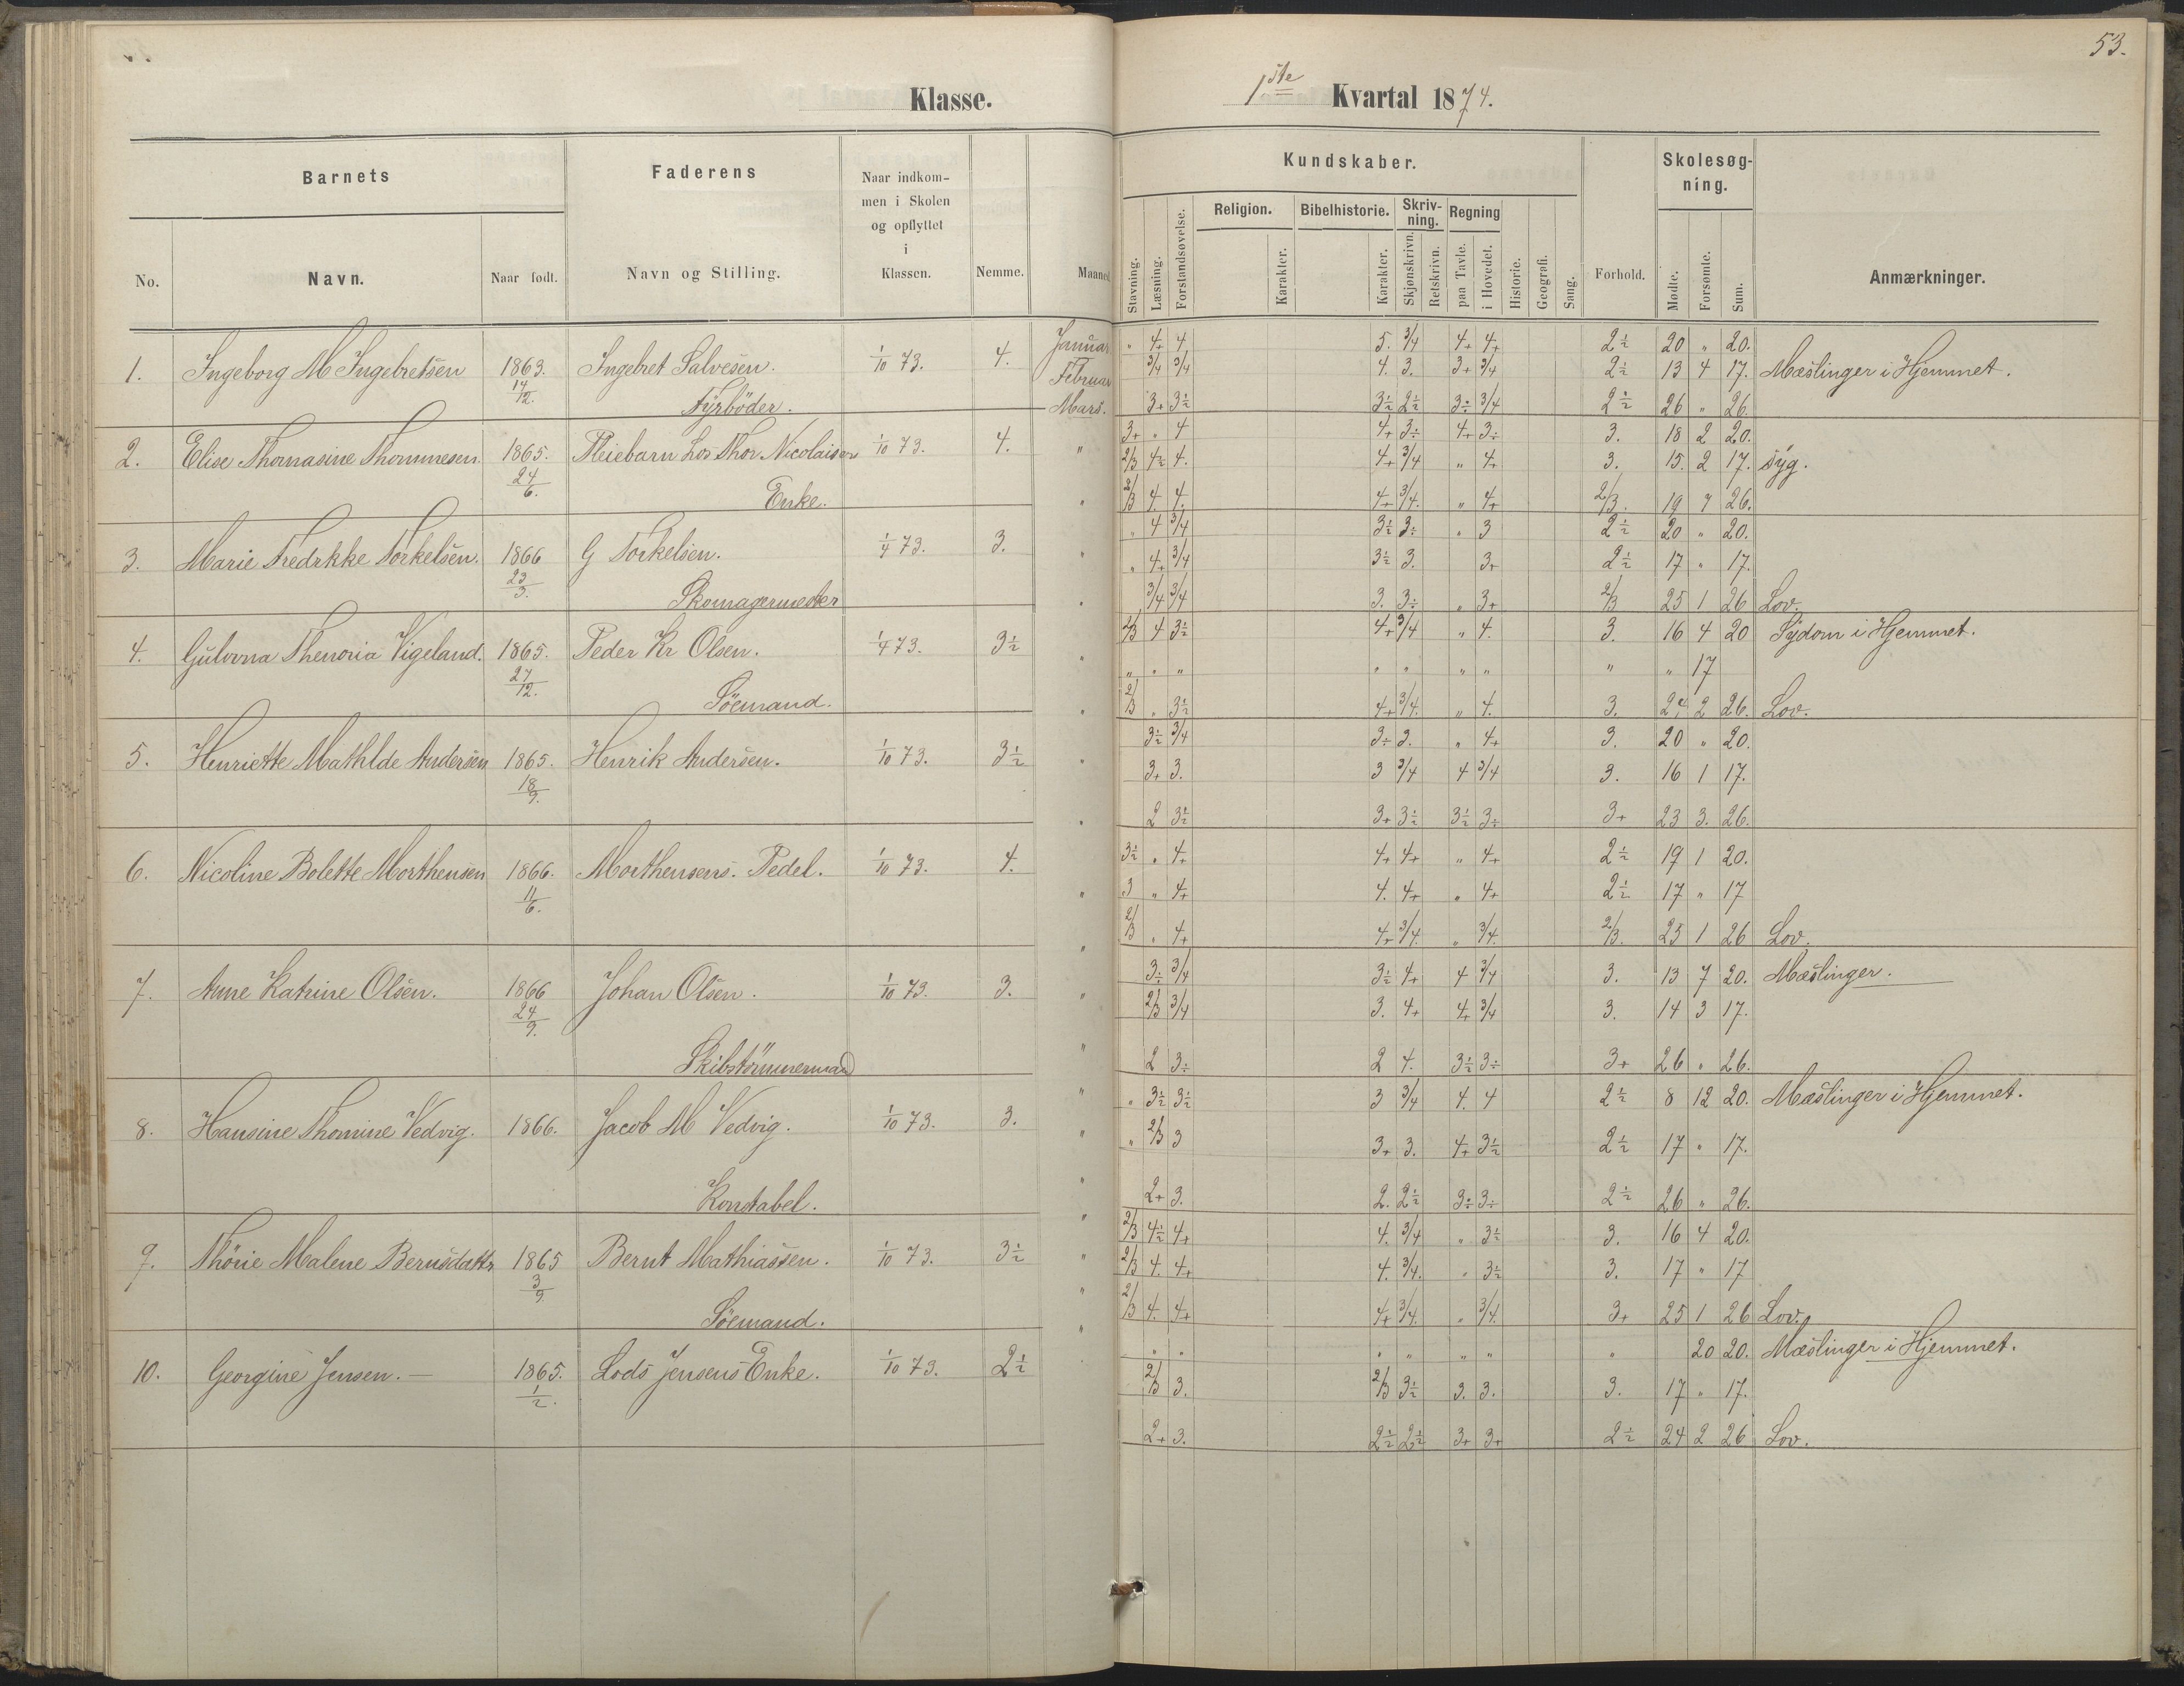 53.
Klasse.
1ste Kvartal 1874.
Barnets
Faderens
Naar indkom-
men i Skolen
og opflyttet
i
Klassen.
No.
Navn.
Naar født.
Navn og Stilling.
Nemme.
Maaned
Kundskaber.
Skolesøg-
ning.
Stavning.
Læsning.
Forstandsøvelse.
Religion.
Karakter.
Bibelhistorie.
Karakter.
Skriv-
ning.
Skjønskrivn.
Retskrivn.
Regning
paa Tavle.
i Hovedet.
Historie.
Geografi.
Sang.
Forhold.
Mødte.
Forsømte.
Sum.
Anmærkninger.
1. Ingeborg M Ingebretsen 1863. 14/12. Ingebret Salvesen. 1/10 73. 4. Januar " 4+ 4 5. 3/4 4+ 4+ 2½ 20 " 20.
Februar 3/4 3/4 4. 3. 3+ 3/4 2½ 13 4 17. Mæslinger i Hjemmet.
Fyrböder. Mars. 3+ 3½ 3½ 2½ 3÷ 3/4 2½ 26 " 26.
2. Elise Thomasine Thommesen. 1865. 24/6. Pleiebarn Los Thor Nicolaisens 1/10 73. 4. " 3+ " 4 4+ 3÷ 4+ 3÷ 3. 18 2 20.
2/3 4½ 4. 4+ 3/4 " 4+ 3. 15. 2 17. syg.
Enke. " 2/3 4. 4. 4+ 3/4. " 4+ 2/3. 19 7 26.
3. Marie Fredrkke Torkelsen. 1866 23/3. G Torkelsen. 1/4 73. 3. " 4 3/4 3½ 3÷ " 3 2½ 20 " 20.
" 4+ 3/4 3½ 3. 3+ 2½ 17 " 17.
Skomagermester " 3/4 3/4 3. 3÷ " 3+ 2/3 25 1 26 Lov.
4. Gulovna Thenoria Vigeland. 1865. 27/12. Peder Kr Olsen. 1/4 73. 3½ 2/3 4 3½ 4+ 3/4 " 4. 3. 16 4 20 Sydom i Hjemmet.
" " " " " " " " " " 17
Söemand. " 2/3 " 3½ 4+ 3/4. " 4. 3. 24 2 26. Lov.
5. Henriette Mathlde Andersen 1865. 18/9. Henrik Andersen. 1/10 73. 3½ 3½ 3/4 3÷ 3. " 4+ 3. 20 " 20.
" 3+ 3. 3 3/4 4 3/4 3. 16 1 17.
" 2 3½ 3+ 3½ 3½ 3÷ 3+ 23 3. 26.
6. Nicoline Bolette Morthensen 1866. 11/6. Morthensens. Pedel. 1/10 73. 4. 3½ " 4+ 4+ 4+ " 4+ 2½ 19 1 20.
" 3 " 4+ 4. 4+ " 4+ 2½ 17 " 17
2/3 " 4+ 4+ 3/4. " 3/4. 2/3. 25 1 26 Lov.
7. Anne Katrine Olsen. 1866 24/9. Johan Olsen. 1/10 73. 3. " 3÷ 3/4 3½ 4+ 4 3/4 3. 13 7 20. Mæslinger.
" 2/3 3/4 3. 4+ 4+ 3/4 3. 14 3 17.
Skibstömmermand " 2 3÷ 2 4. 3½ 3÷ 3+ 26 " 26.
8. Hansine Thomine Vedvig. 1866. Jacob M Vedvig. 1/10 73. 3. " " 3½ 3½ 3 3/4 4. 4 2½ 8 12 20. Mæslinger i Hjemmet.
" " 2/3 3 3+ 3. 4+ 3½ 2½ 17 " 17.
Konstabel. " 2+ 3. 2. 2½ 3÷ 3÷ 2½ 26 " 26.
9. Thörie Malene Bernsdattr 1865 3/9 Bernt Mathiassen. 1/10 73. 3½ " 2/3 4½ 4+ 4. 3/4 " 3½ 3. 16 4 20.
" 2/3 4. 4+ 4. 3/4. " 3½ 3. 17 " 17
Söemand. " 2/3 4. 4+ 4+ 3/4. " 3/4. 3+ 25 1 26 Lov.
10. Georgine Jensen. 1865. 1/2. Lods Jensens Enke. 1/10 73. 2½ " " " " " " " " 20 20. Mæslinger i Hjemmet.
2/3 3. 2/3 3½ 3. 3. 3. 17 " 17.
2+ 3. 2½ 2½ 3+ 3+ 2½ 24 2 26 Lov.